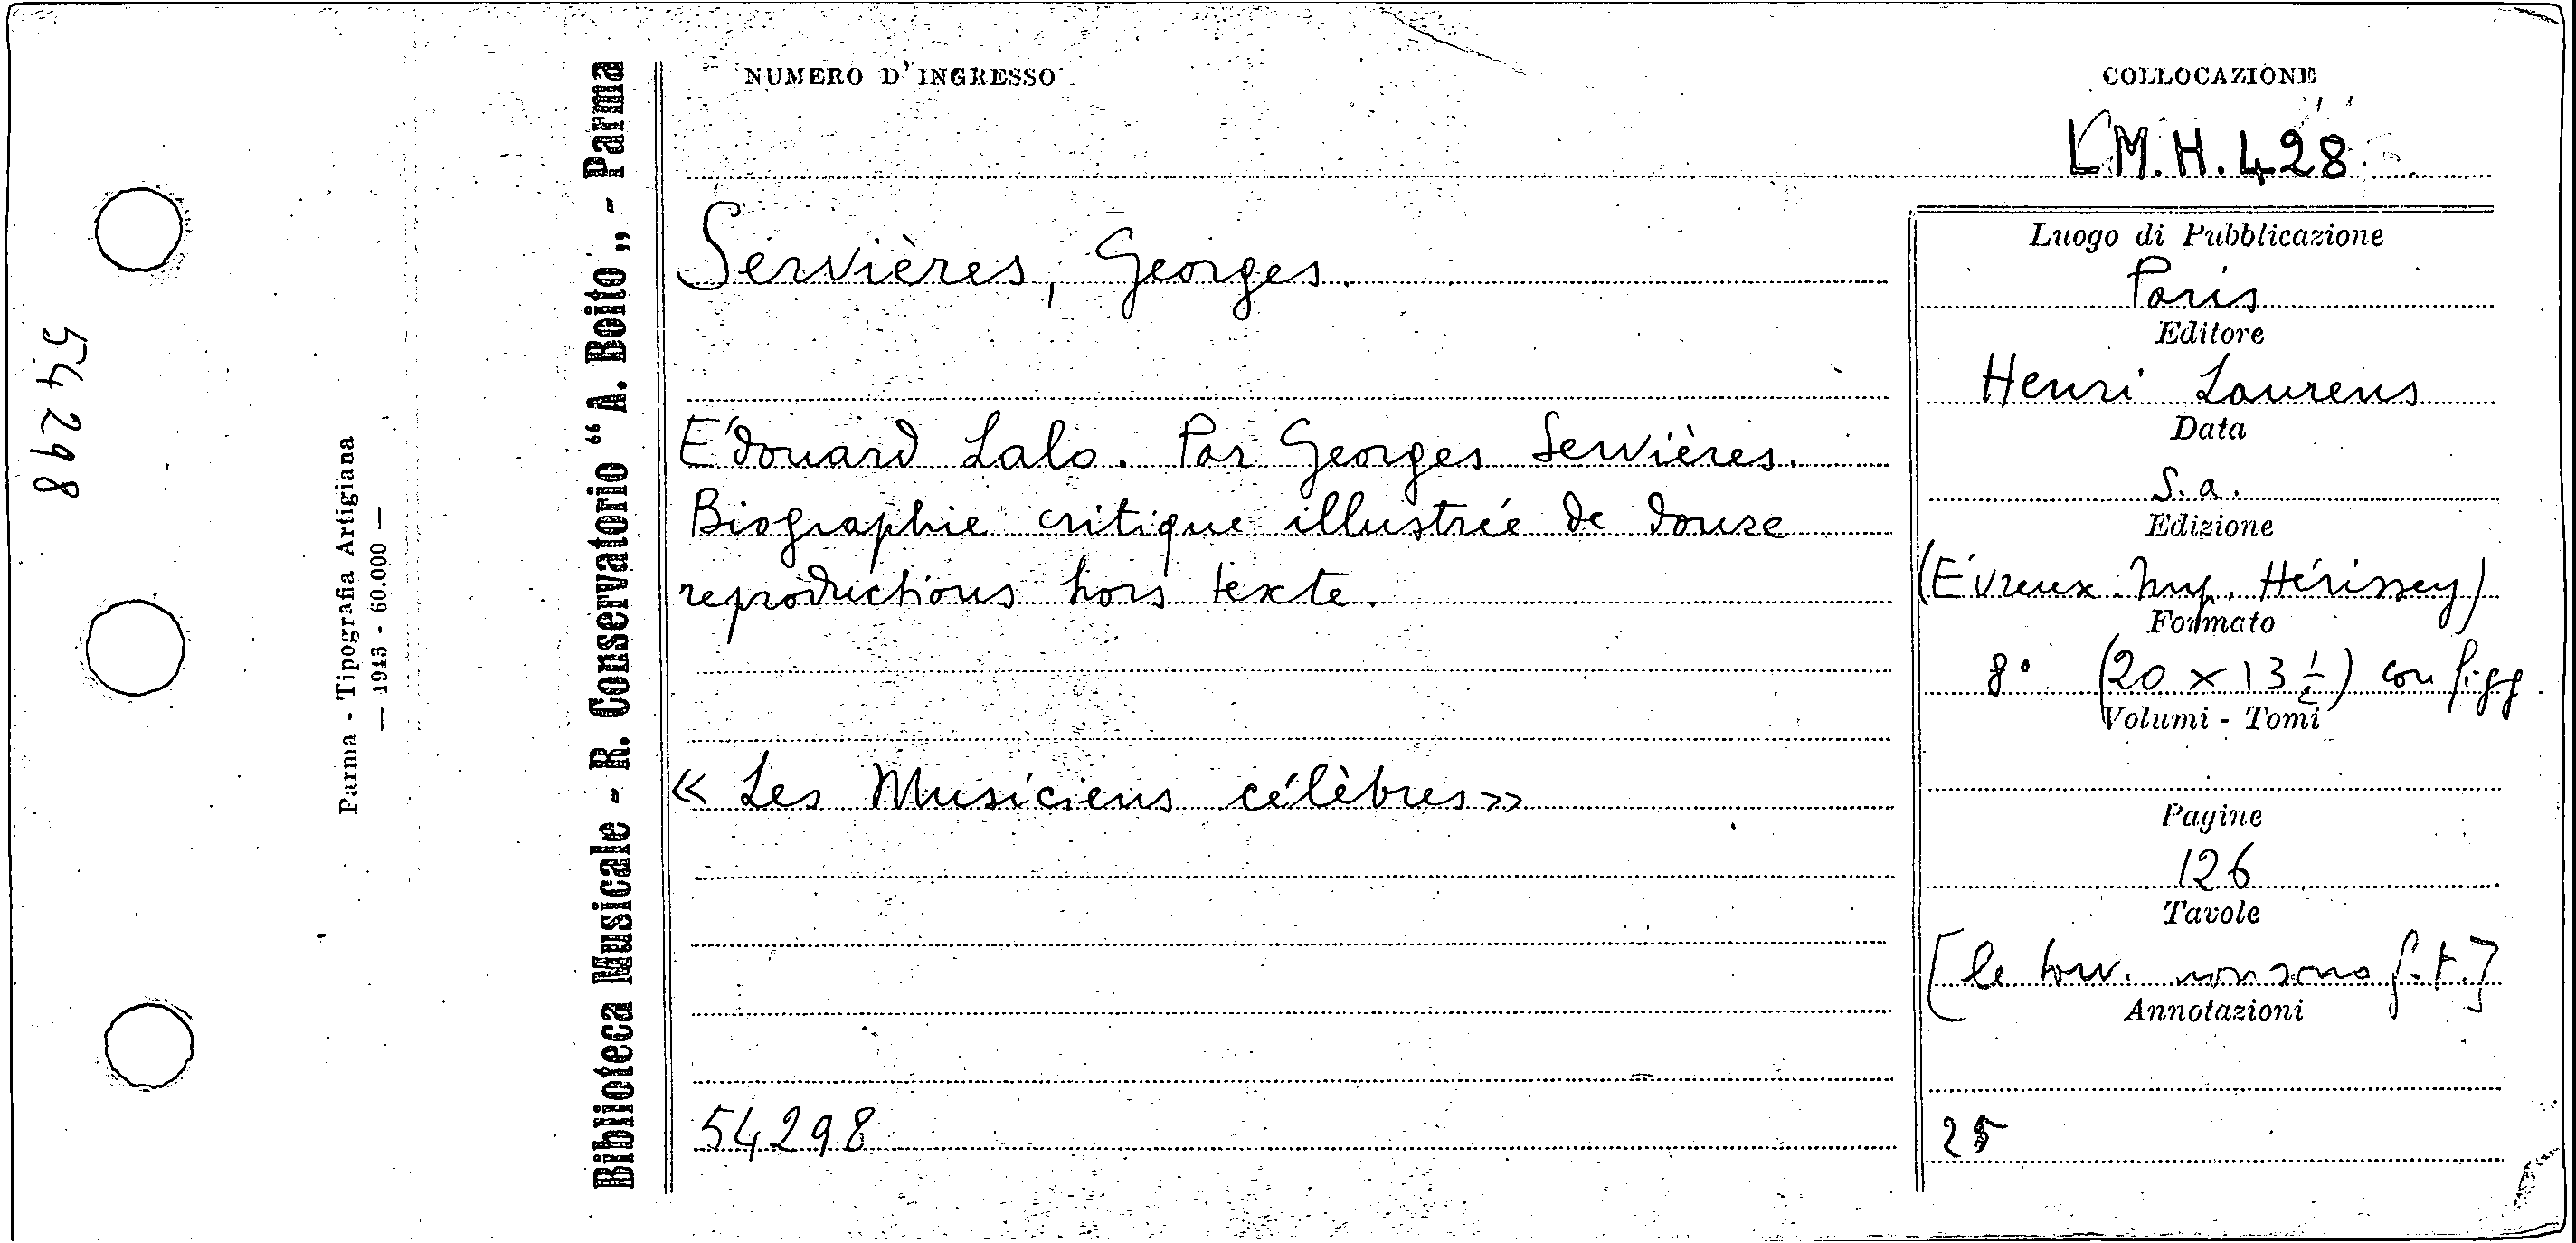 NUMERO D'INGRESSO
COLLOCAZIONE
LM.H.428
Servières, Georges.
Édouard Lalo. Par Georges Servières.
Biographie critique illustrée de douze
reproductions hors texte.
« Les Musiciens célèbres »
54298
Luogo di Pubblicazione
Paris
Editore
Henri Laurens
Data
S. a.
Edizione
(Évreux. Imp. Hérissey)
Formato
8° (20 x 13 ½) con figg.
Volumi - Tomi
Pagine
126
Tavole
[le tavv. non sono f. t.]
Annotazioni
25
Biblioteca Musicale - R. Conservatorio "A. Boito„ - Parma
Parma - Tipografia Artigiana
— 1943 - 60.000 —
54298